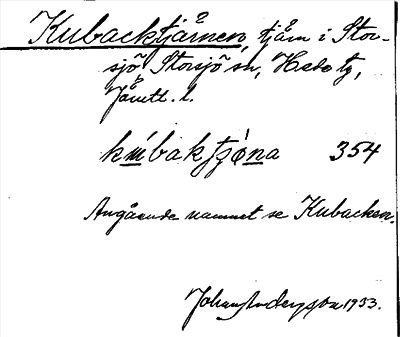 Kubacktjärnen, tjärn i Stor-
sjö, Storsjö sn, Hede tg,
Jämtl. l.
kúbaktjǫ́na 354
Angående namnet se Kubacken.
Johan Anderzson 1933.